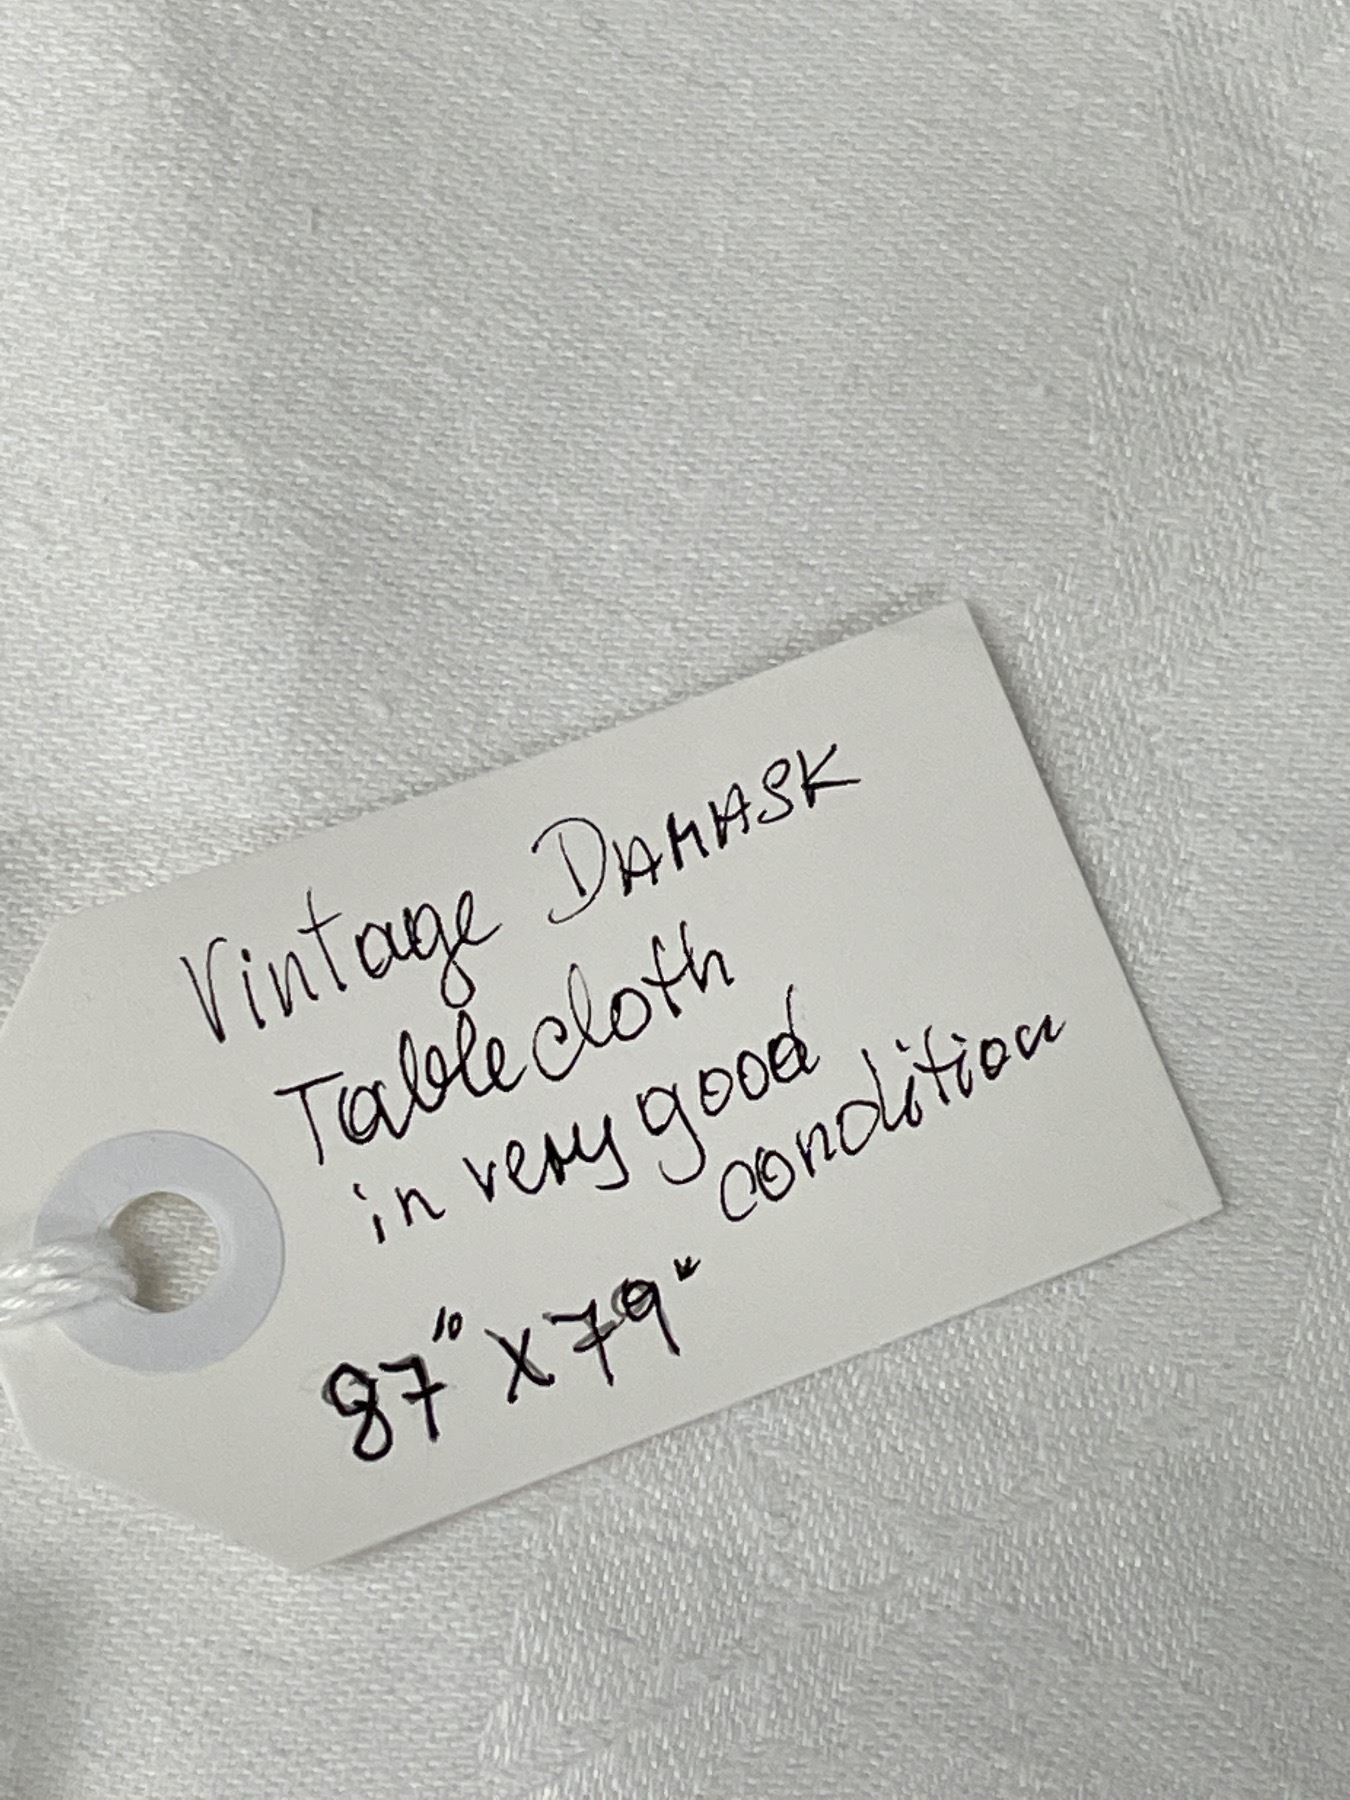 Vintage DAMASK
Tablecloth
in very good
condition
87" X 79"